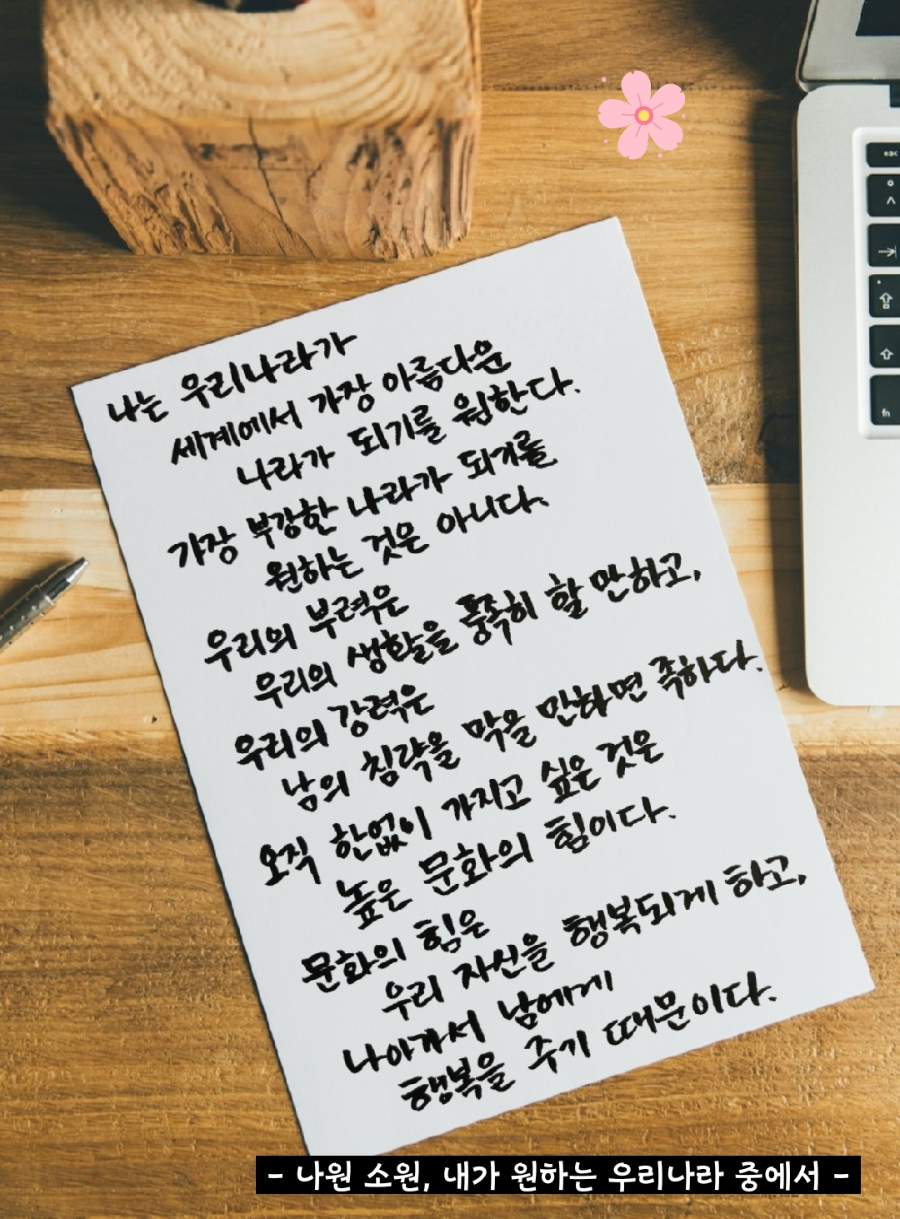 나는 우리나라가
세계에서 가장 아름다운
나라가 되기를 원한다.
가장 부강한 나라가 되기를
원하는 것은 아니다.
우리의 부력은
우리의 생활을 풍족히 할 만하고,
우리의 강력은
남의 침략을 막을 만하면 족하다.
오직 한없이 가지고 싶은 것은
높은 문화의 힘이다.
문화의 힘은
우리 자신을 행복되게 하고,
나아가서 남에게
행복을 주기 때문이다.
- 나원 소원, 내가 원하는 우리나라 중에서 -
fn